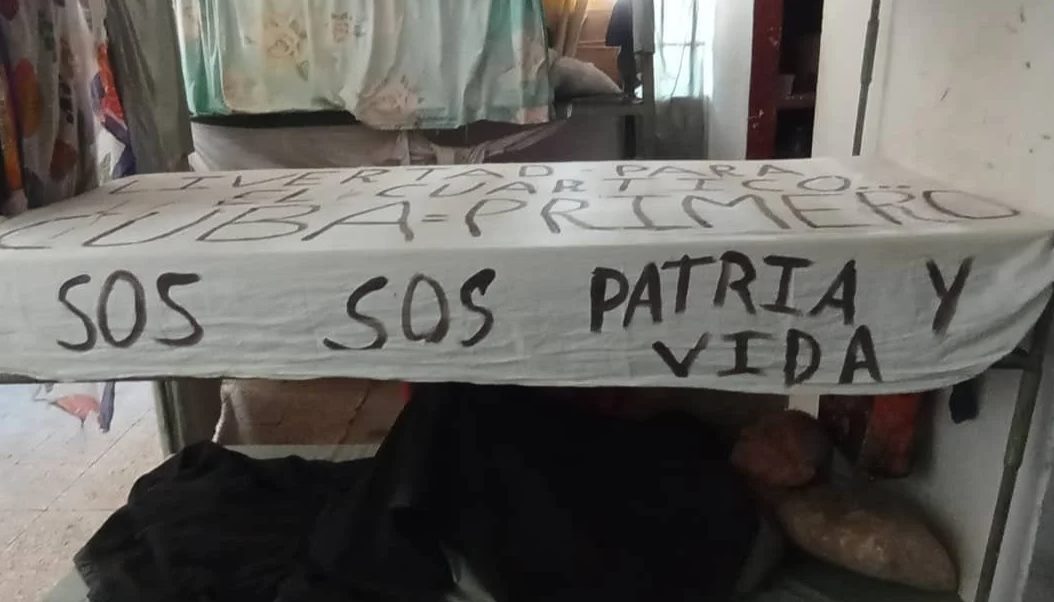 LIVERTAD PARA
EL CUARTICO...
CUBA=PRIMERO
SOS SOS PATRIA Y
VIDA